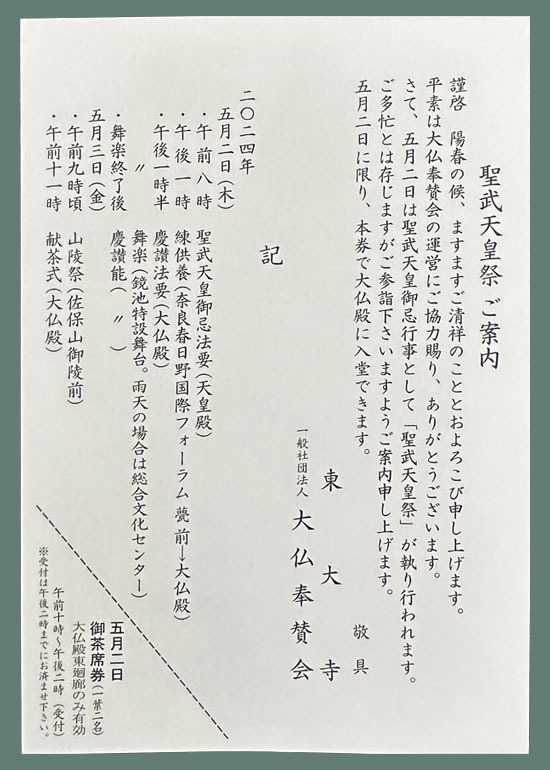 聖武天皇祭 ご案内
謹啓 陽春の候、ますますご清祥のこととおよろこび申し上げます。
平素は大仏奉賛会の運営にご協力賜り、ありがとうございます。
さて、五月二日は聖武天皇御忌行事として「聖武天皇祭」が執り行われます。
ご多忙とは存じますがご参詣下さいますようご案内申し上げます。
五月二日に限り、本券で大仏殿に入堂できます。
敬具
東大寺
一般社団法人 大仏奉賛会
記
二〇二四年
五月二日(木)
・午前八時 聖武天皇御忌法要(天皇殿)
・午後一時 練供養(奈良春日野国際フォーラム 甍 前→大仏殿)
・午後一時半 慶讃法要(大仏殿)
〃 舞楽(鏡池特設舞台。雨天の場合は総合文化センター)
・舞楽終了後 慶讃能( 〃 )
五月三日(金)
・午前九時頃 山陵祭(佐保山御陵前)
・午前十一時 献茶式(大仏殿)
五月二日
御茶席券(一葉二名)
大仏殿東廻廊のみ有効
午前十時～午後二時(受付)
※受付は午後二時までにお済ませ下さい。